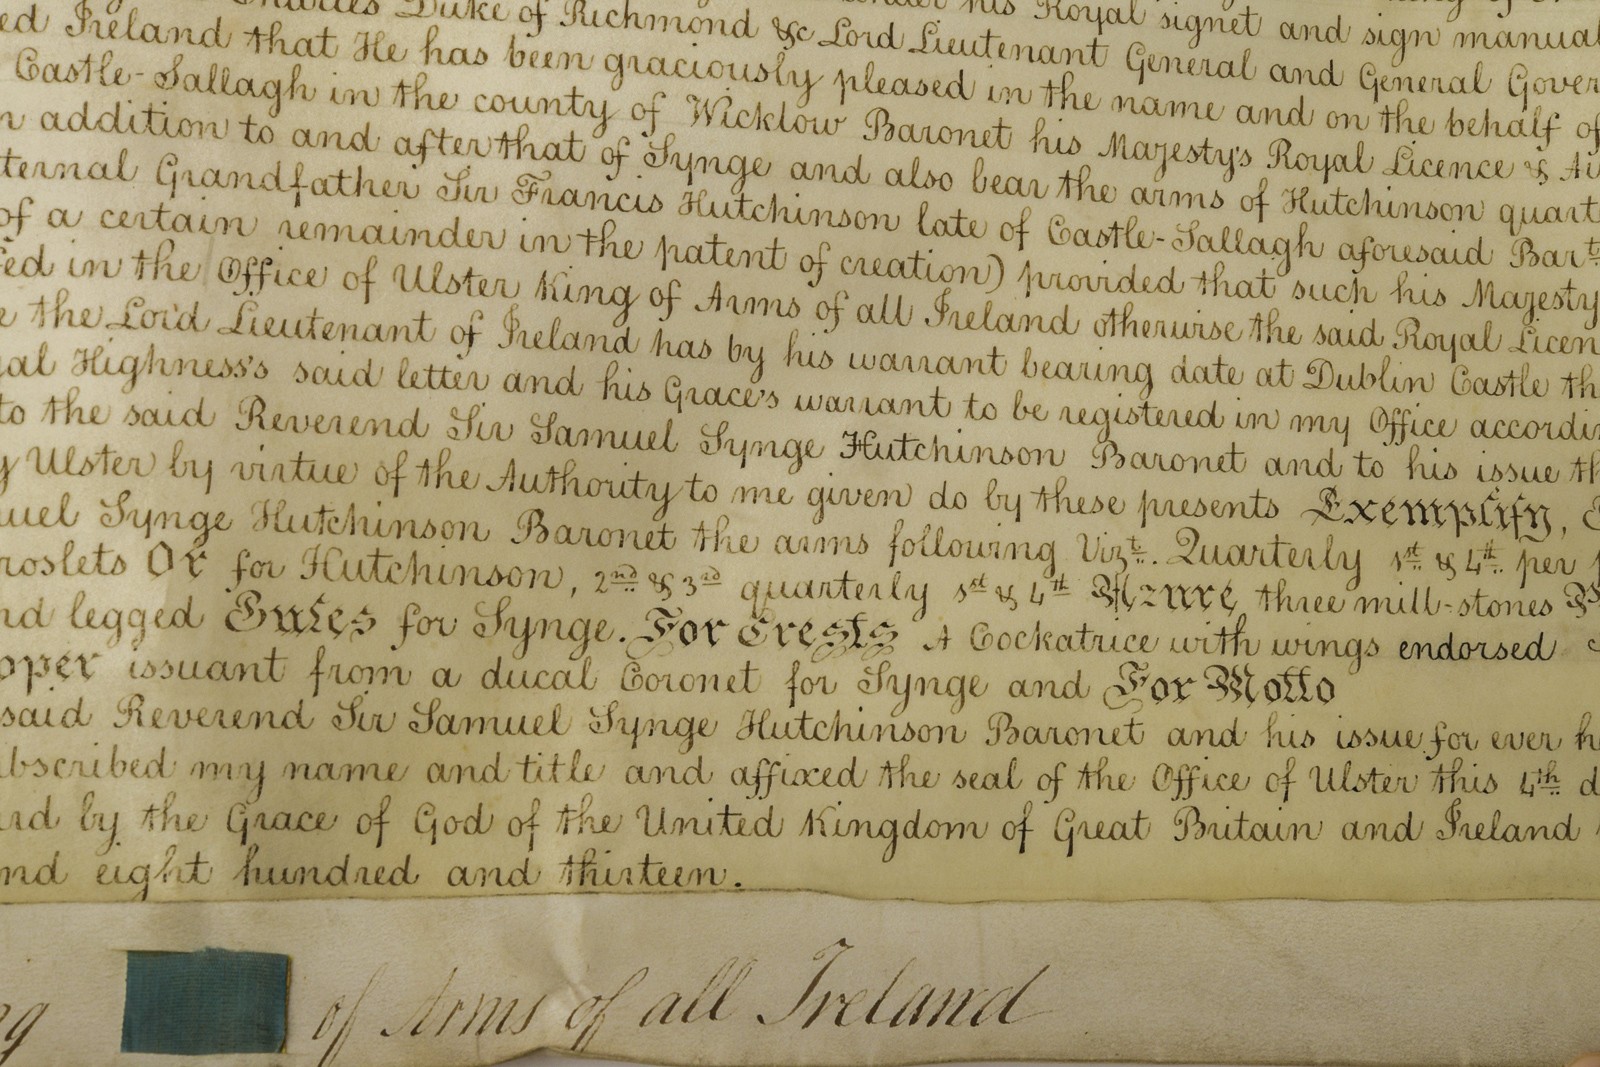 Charles Duke of Richmond &c Lord Lieutenant General and General Gover
his Royal signet and sign manual
ed Ireland that He has been graciously pleased in the name and on the behalf of
Castle-Sallagh in the county of Wicklow Baronet his Majesty's Royal Licence &
addition to and after that of Synge and also bear the arms of Hutchinson quart
ternal Grandfather Sir Francis Hutchinson late of Castle-Sallagh aforesaid Bart.
of a certain remainder in the patent of creation) provided that such his Majesty
ed in the Office of Ulster King of Arms of all Ireland otherwise the said Royal Licen
e the Lord Lieutenant of Ireland has by his warrant bearing date at Dublin Castle th
al Highness's said letter and his Grace's warrant to be registered in my Office accordi
to the said Reverend Sir Samuel Synge Hutchinson Baronet and to his issue th
y Ulster by virtue of the Authority to me given do by these presents Exemplify,
uel Synge Hutchinson Baronet the arms following Vizt. Quarterly 1st & 4th per
roslets Or for Hutchinson, 2nd & 3rd quarterly 1st & 4th Azure, three mill-stones
nd legged Gules for Synge. For Crests A Cockatrice with wings endorsed
oper issuant from a ducal Coronet for Synge and For Motto
said Reverend Sir Samuel Synge Hutchinson Baronet and his issue for ever h
ubscribed my name and title and affixed the seal of the Office of Ulster this 4th d
ird by the Grace of God of the United Kingdom of Great Britain and Ireland
nd eight hundred and thirteen.
ng of Arms of all Ireland